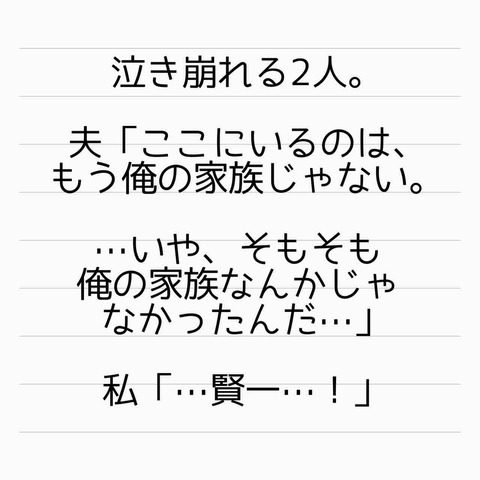 泣き崩れる2人。
夫「ここにいるのは、
もう俺の家族じゃない。
…いや、そもそも
俺の家族なんかじゃ
なかったんだ…」
私「…賢一…！」